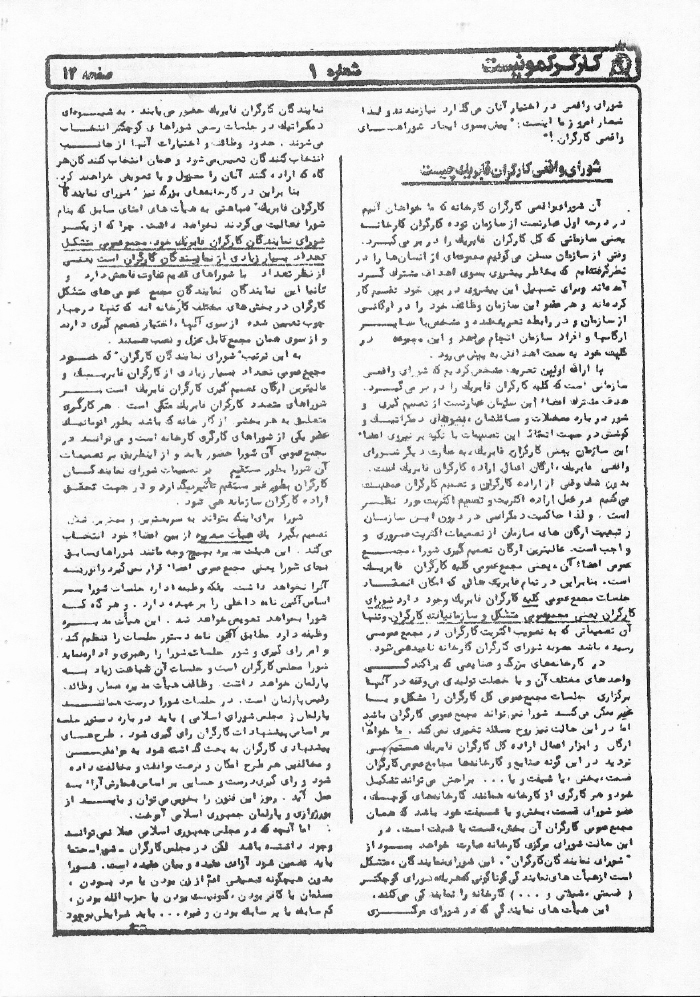 کارگر کمونیست
شماره ۱
صفحه ۱۲
شورای واقعی در اختیار آنان می گذارد نیازمندند و لذا
شعار امروز ما اینست: "پیش بسوی ایجاد شوراهای
واقعی کارگران!"
شورای واقعی کارگران فابریک چیست
آن شورا واقعی کارگران کارخانه که ما خواهان آنیم
در درجه اول عبارتست از سازمان توده کارگران کارخانه
یعنی سازمانی که کل کارگران فابریک را در بر می گیرد.
وقتی از سازمان سخن می گوئیم مجموعه ای از انسانها را در
نظر گرفته ایم که بخاطر پیشروی بسوی اهداف مشترک گرد
آمده اند و برای تسهیل این پیشروی در بین خود تقسیم کار
کرده اند و هر عضو این سازمان وظائف خود را در ارگانی
از سازمان و در رابطه تعریف شده و مشخص با سایر
ارگانها و افراد سازمان انجام میدهد و این مجموعه در
کلیت خود به سمت اهدافش به پیش می رود.
با ارائه اولین تعریف مشخص کردیم که شورای واقعی
سازمانی است که کلیه کارگران فابریک را در بر می گیرد.
هدف مشترک اعضاء این سازمان عبارتست از تصمیم گیری و
شور درباره معضلات و مسائلشان بشیوه ای دمکراتیک و
کوشش در جهت اعمال این تصمیمات با تکیه بر نیروی اعضاء
این سازمان یعنی کارگران فابریک، به عبارت دیگر شورای
واقعی فابریک، ارگان اعمال اراده کارگران فابریک است.
بدون شک وقتی از اراده کارگران و تصمیم کارگران صحبت
می کنیم در عمل اراده اکثریت و تصمیم اکثریت مورد نظر
است. و لذا حاکمیت دمکراسی در درون این سازمان
و تبعیت ارگان های سازمان از تصمیمات اکثریت ضروری و
واجب است. عالیترین ارگان تصمیم گیری شورا، مجمع
عمومی اعضاء آن، یعنی مجمع عمومی کلیه کارگران فابریک
است. بنابراین در تمام فابریک هائی که امکان انعقاد
جلسات مجمع عمومی کلیه کارگران فابریک وجود دارد شورای
کارگران یعنی مجمع عمومی متشکل و سازمانیافته کارگران، و تنها
آن تصمیماتی که به تصویب اکثریت کارگران در مجمع عمومی
رسیده باشد مصوبه شورای کارگران کارخانه نامیده می شود.
در کارخانه های بزرگ و صنایعی که پراکندگی
واحدهای مختلف آن و یا خصلت تولیدی بی وقفه در آنها
برگزاری جلسات مجمع عمومی کل کارگران را مشکل و یا
غیر ممکن می کند شورا نمی تواند مجمع عمومی کارگران باشد
اما در این حالت نیز روح مسئله تغییری نمی کند. ما خواهان
ارگان و ابزار اعمال اراده کل کارگران فابریک هستیم پس
تردید در این گونه صنایع و کارخانه ها مجامع عمومی کارگران
قسمت، بخش، یا شیفت و یا ... براحتی می تواند تشکیل
شود و هر کارگری از کارخانه همانند کارخانه های کوچک،
عضو شورای قسمت، بخش و یا شیفت خود باشد که همان
مجمع عمومی کارگران آن بخش، قسمت یا شیفت است. در
این حالت شورای مرکزی کارخانه عبارت خواهد بود از
"شورای نمایندگان کارگران". این شورای نمایندگان، متشکل
است از هیأت های نمایندگی گوناگونی که هر یک شورای کوچکتر
(قسمتی، شیفتی و ...) کارخانه را نمایندگی می کنند.
این هیأت های نمایندگی که در شورای مرکزی
نمایندگان کارگران فابریک حضور می یابند، به شیوه ای
دمکراتیک در جلسات رسمی شوراهای کوچکتر انتخاب
می شوند. حدود وظائف و اختیارات آنها از جانب
انتخاب کنندگان تعیین می شود و همان انتخاب کنندگان هر
گاه که اراده کنند آنان را معزول و یا تعویض خواهند کرد.
بنا براین در کارخانه های بزرگ نیز "شورای نمایندگان
کارگران فابریک" شباهتی به هیأت های امنای سابق که بنام
شورا فعالیت می کردند نخواهد داشت. چرا که از یکسو
شورای نمایندگان کارگران فابریک خود، مجمع عمومی متشکل
تعداد بسیار زیادی از نمایندگان کارگران است یعنی
از نظر تعداد با شوراهای قدیم تفاوت فاحش دارد و
ثانیا این نمایندگان نمایندگان مجمع عمومی های متشکل
کارگران در بخش های مختلف کارخانه اند که تنها در چهار
چوب تعیین شده از سوی آنها، اختیار تصمیم گیری دارند
و از سوی همان مجمع قابل عزل و نصب هستند.
به این ترتیب "شورای نمایندگان کارگران" که خود
مجمع عمومی تعداد بسیار زیادی از کارگران فابریک و
عالیترین ارگان تصمیم گیری کارگران فابریک است بر
شوراهای متعدد کارگران فابریک متکی است. هر کارگری
متعلق به هر بخشی از کارخانه که باشد بطور اتوماتیک
عضو یکی از شوراهای کارگری کارخانه است و می تواند در
مجمع عمومی آن شورا حضور یابد و از اینطریق بر تصمیمات
آن شورا بطور مستقیم بر تصمیمات شورای نمایندگان
کارگران بطور غیر مستقیم تأثیر میگذارد و در جهت تحقق
اراده کارگران سازمانده می شود.
شورا برای اینکه بتواند به سریعترین و بهترین شکل
تصمیم بگیرد یک هیأت مدیره از بین اعضاء خود انتخاب
می کند. این هیئت مدیره بهیچ وجه مانند شوراهای سابق
بجای شورا یعنی مجمع عمومی اعضاء قرار نمی گیرد و اتوریته
آنرا نخواهد داشت. بلکه وظیفه اداره جلسات شورا بر
اساس آئین نامه داخلی را بر عهده دارد. و هر گاه که
شورا بخواهد تعویض خواهد شد. این هیأت مدیره
وظیفه دارد مطابق آئین نامه دستور جلسات را تنظیم کند،
و امر رای گیری و شور جلسات شورا را رهبری و اداره نماید
شورا مجلس کارگران است و جلسات آن شباهت زیاد به
پارلمان خواهد داشت. وظائف هیأت مدیره همان وظائف
رئیس پارلمان است. در جلسات شورا درست همانند
پارلمان (مجلس شورای اسلامی) باید درباره دستور جلسه
بر اساس پیشنهادات کارگران رای گیری شود. طرح های
پیشنهادی کارگران به بحث گذاشته شود به موافقین
و مخالفین هر طرح امکان و فرصت موافقت و مخالفت داده
شود و رای گیری درست و حسابی بر اساس شمارش آراء به
عمل آید. رموز این فنون را بخوبی می توان و بایست از
بورژوازی و پارلمان جمهوری اسلامی آموخت.
اما آنچه که در مجلس جمهوری اسلامی عملا نمی تواند
وجود داشته باشد لکن در مجلس کارگران - شورا - حتما
باید تضمین شود آزادی عقیده و بیان عقیده است. شورا
بدون هیچگونه تبعیضی اعم از زن بودن یا مرد بودن،
مسلمان یا کافر بودن، کمونیست بودن یا حزب الله بودن،
کم سابقه یا پر سابقه بودن و غیره ... باید شرایطی بوجود